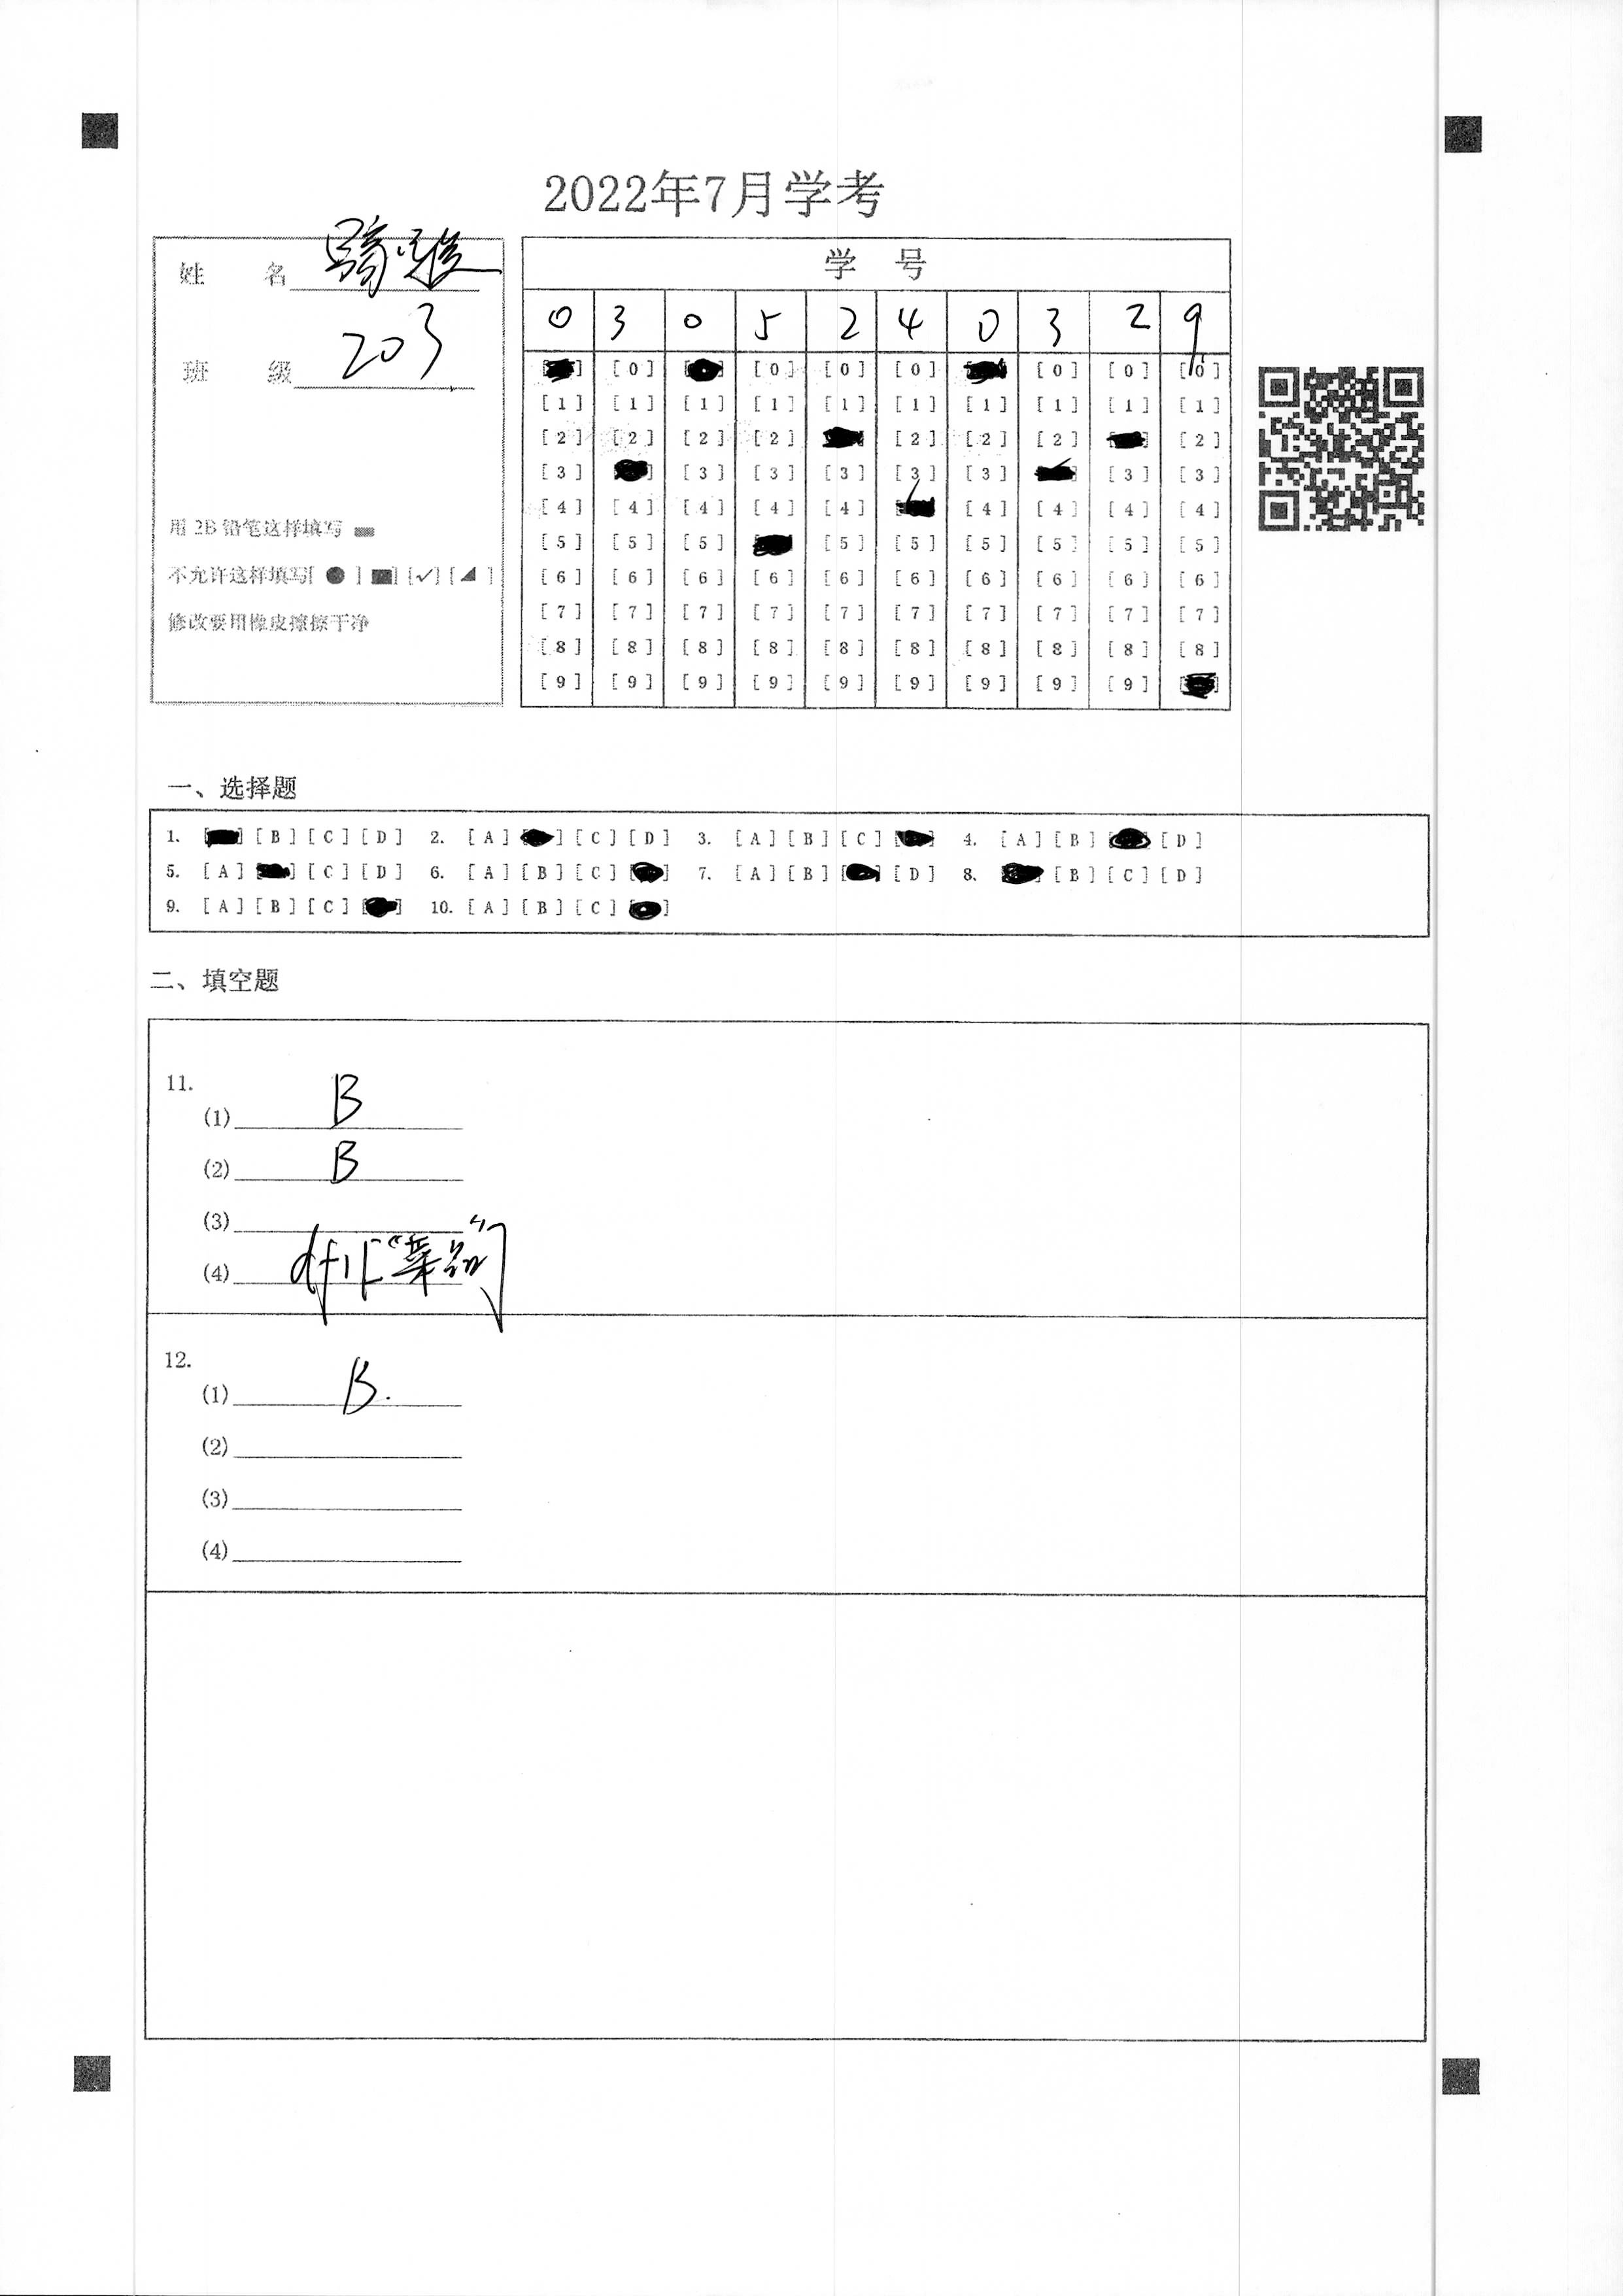 2022年7月学考
姓 名
班 级 203
用 2B 铅笔这样填写
不允许这样填写[ ● ] [■] [✓] [◢ ]
修改要用橡皮擦擦干净
学 号
0 3 0 5 2 4 0 3 2 9
[0] [0] [0] [0] [0] [0]
[1] [1] [1] [1] [1] [1] [1] [1] [1] [1]
[2] [2] [2] [2] [2] [2] [2] [2]
[3] [3] [3] [3] [3] [3] [3] [3]
[4] [4] [4] [4] [4] [4] [4] [4] [4]
[5] [5] [5] [5] [5] [5] [5] [5] [5]
[6] [6] [6] [6] [6] [6] [6] [6] [6] [6]
[7] [7] [7] [7] [7] [7] [7] [7] [7] [7]
[8] [8] [8] [8] [8] [8] [8] [8] [8] [8]
[9] [9] [9] [9] [9] [9] [9] [9] [9]
一、选择题
1. [B] [C] [D] 2. [A] [C] [D] 3. [A] [B] [C] 4. [A] [B] [D]
5. [A] [C] [D] 6. [A] [B] [C] 7. [A] [B] [D] 8. [B] [C] [D]
9. [A] [B] [C] 10. [A] [B] [C]
二、填空题
11.
(1) B
(2) B
(3)
(4) df1["菜名"]
12.
(1) B.
(2)
(3)
(4)